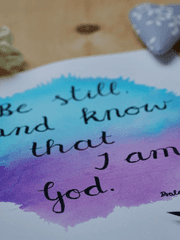 Be still,
and know
that
I am
God.